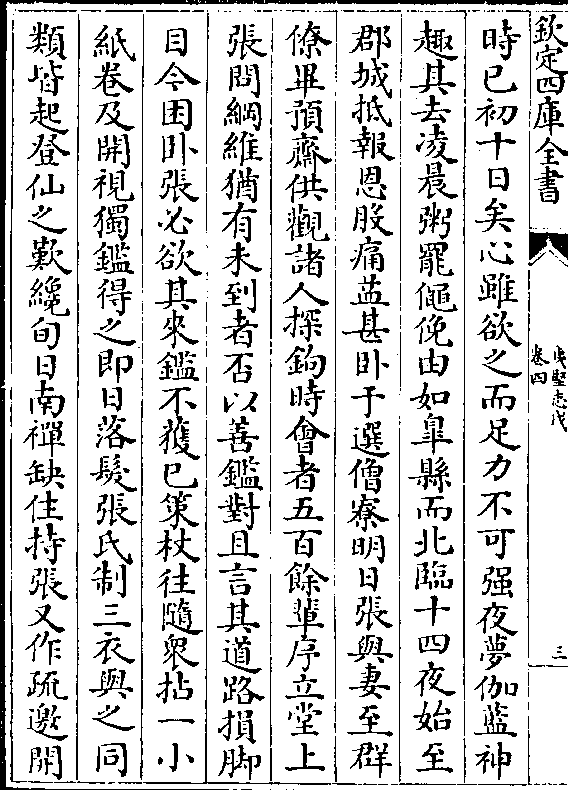 欽定四庫全書
夷堅志戊
卷四
三
時已初十日矣心雖欲之而足力不可强夜夢伽藍神
趣其去凌晨粥罷僶俛由如臯縣而北臨十四夜始至
郡城抵報恩股痛益甚卧于選僧寮明日張與妻至群
僚畢預齋供觀諸人探鉤時會者五百餘輩序立堂上
張問綱維猶有未到者否以善鑑對且言其道路損脚
目今困卧張必欲其來鑑不獲已策杖往隨衆拈一小
紙卷及開視獨鑑得之即日落髮張氏制三衣與之同
類皆起登仙之歎纔旬日南禪缺住持張又作疏邀開